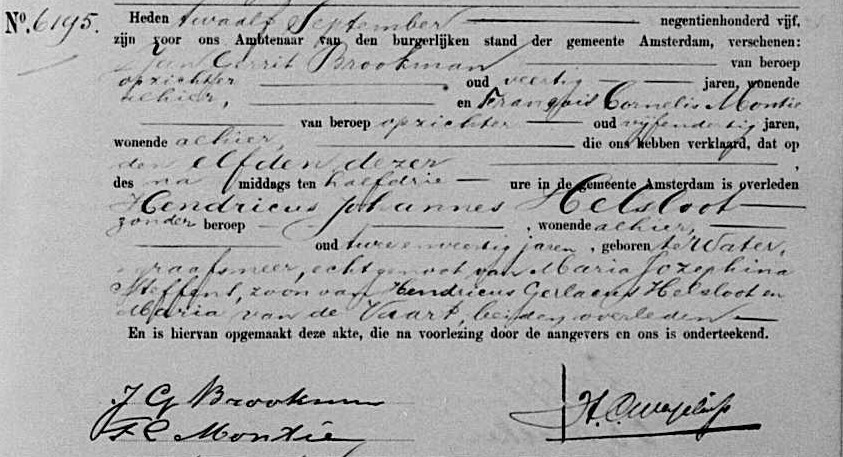 No. 6195.
Heden twaalf September negentienhonderd vijf,
zijn voor ons Ambtenaar van den burgerlijken stand der gemeente Amsterdam, verschenen:
Jan Gerrit Brookman van beroep
opzichter oud veertig jaren, wonende
alhier, en François Cornelis Montie
van beroep opzichter oud vijfendertig jaren,
wonende alhier, die ons hebben verklaard, dat op
den elfden dezer,
des na middags ten halfdrie ure in de gemeente Amsterdam is overleden
Hendricus Johannes Helsloot
zonder beroep, wonende alhier,
oud tweeenveertig jaren, geboren te Water,
graafsmeer, echtgenoot van Maria Jozephina
Steffent, zoon van Hendricus Gerlacus Helsloot en
Maria van de Vaart, beiden overleden
En is hiervan opgemaakt deze akte, die na voorlezing door de aangevers en ons is onderteekend.
J G Brookman
F C Montie